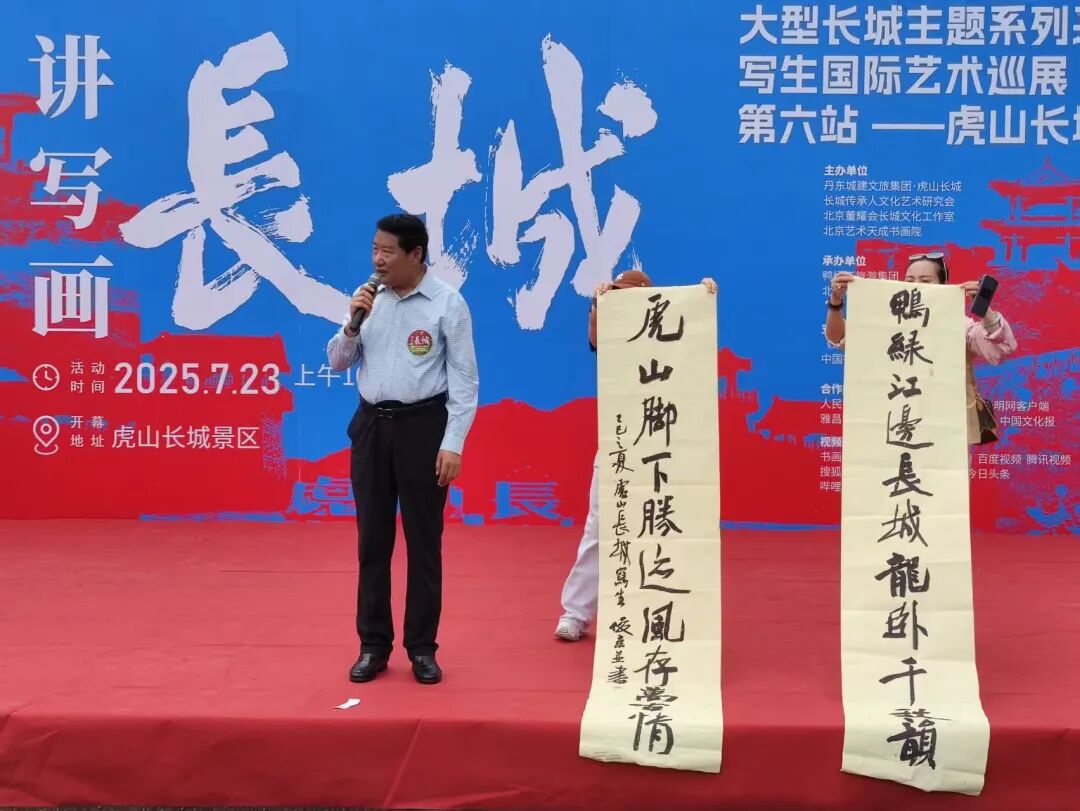 讲写画
長城
大型长城主题系列
写生国际艺术巡展
第六站 ——虎山长城
主办单位
丹东城建文旅集团·虎山长城
长城传承人文化艺术研究会
北京董耀会长城文化工作室
北京艺术天成书画院
承办单位
旅游集团
中国
合作
人民
雅昌
明网客户端
中国文化报
视频
书画
百度视频 腾讯视频
搜狐
今日头条
哔哩
活动时间
2025.7.23 上午1
开幕地址
虎山长城景区
長城
虎山長
鴨緑江邊長城龍卧千韻
虎山脚下勝迹風存情
乙巳之夏虎山長城寫生並書